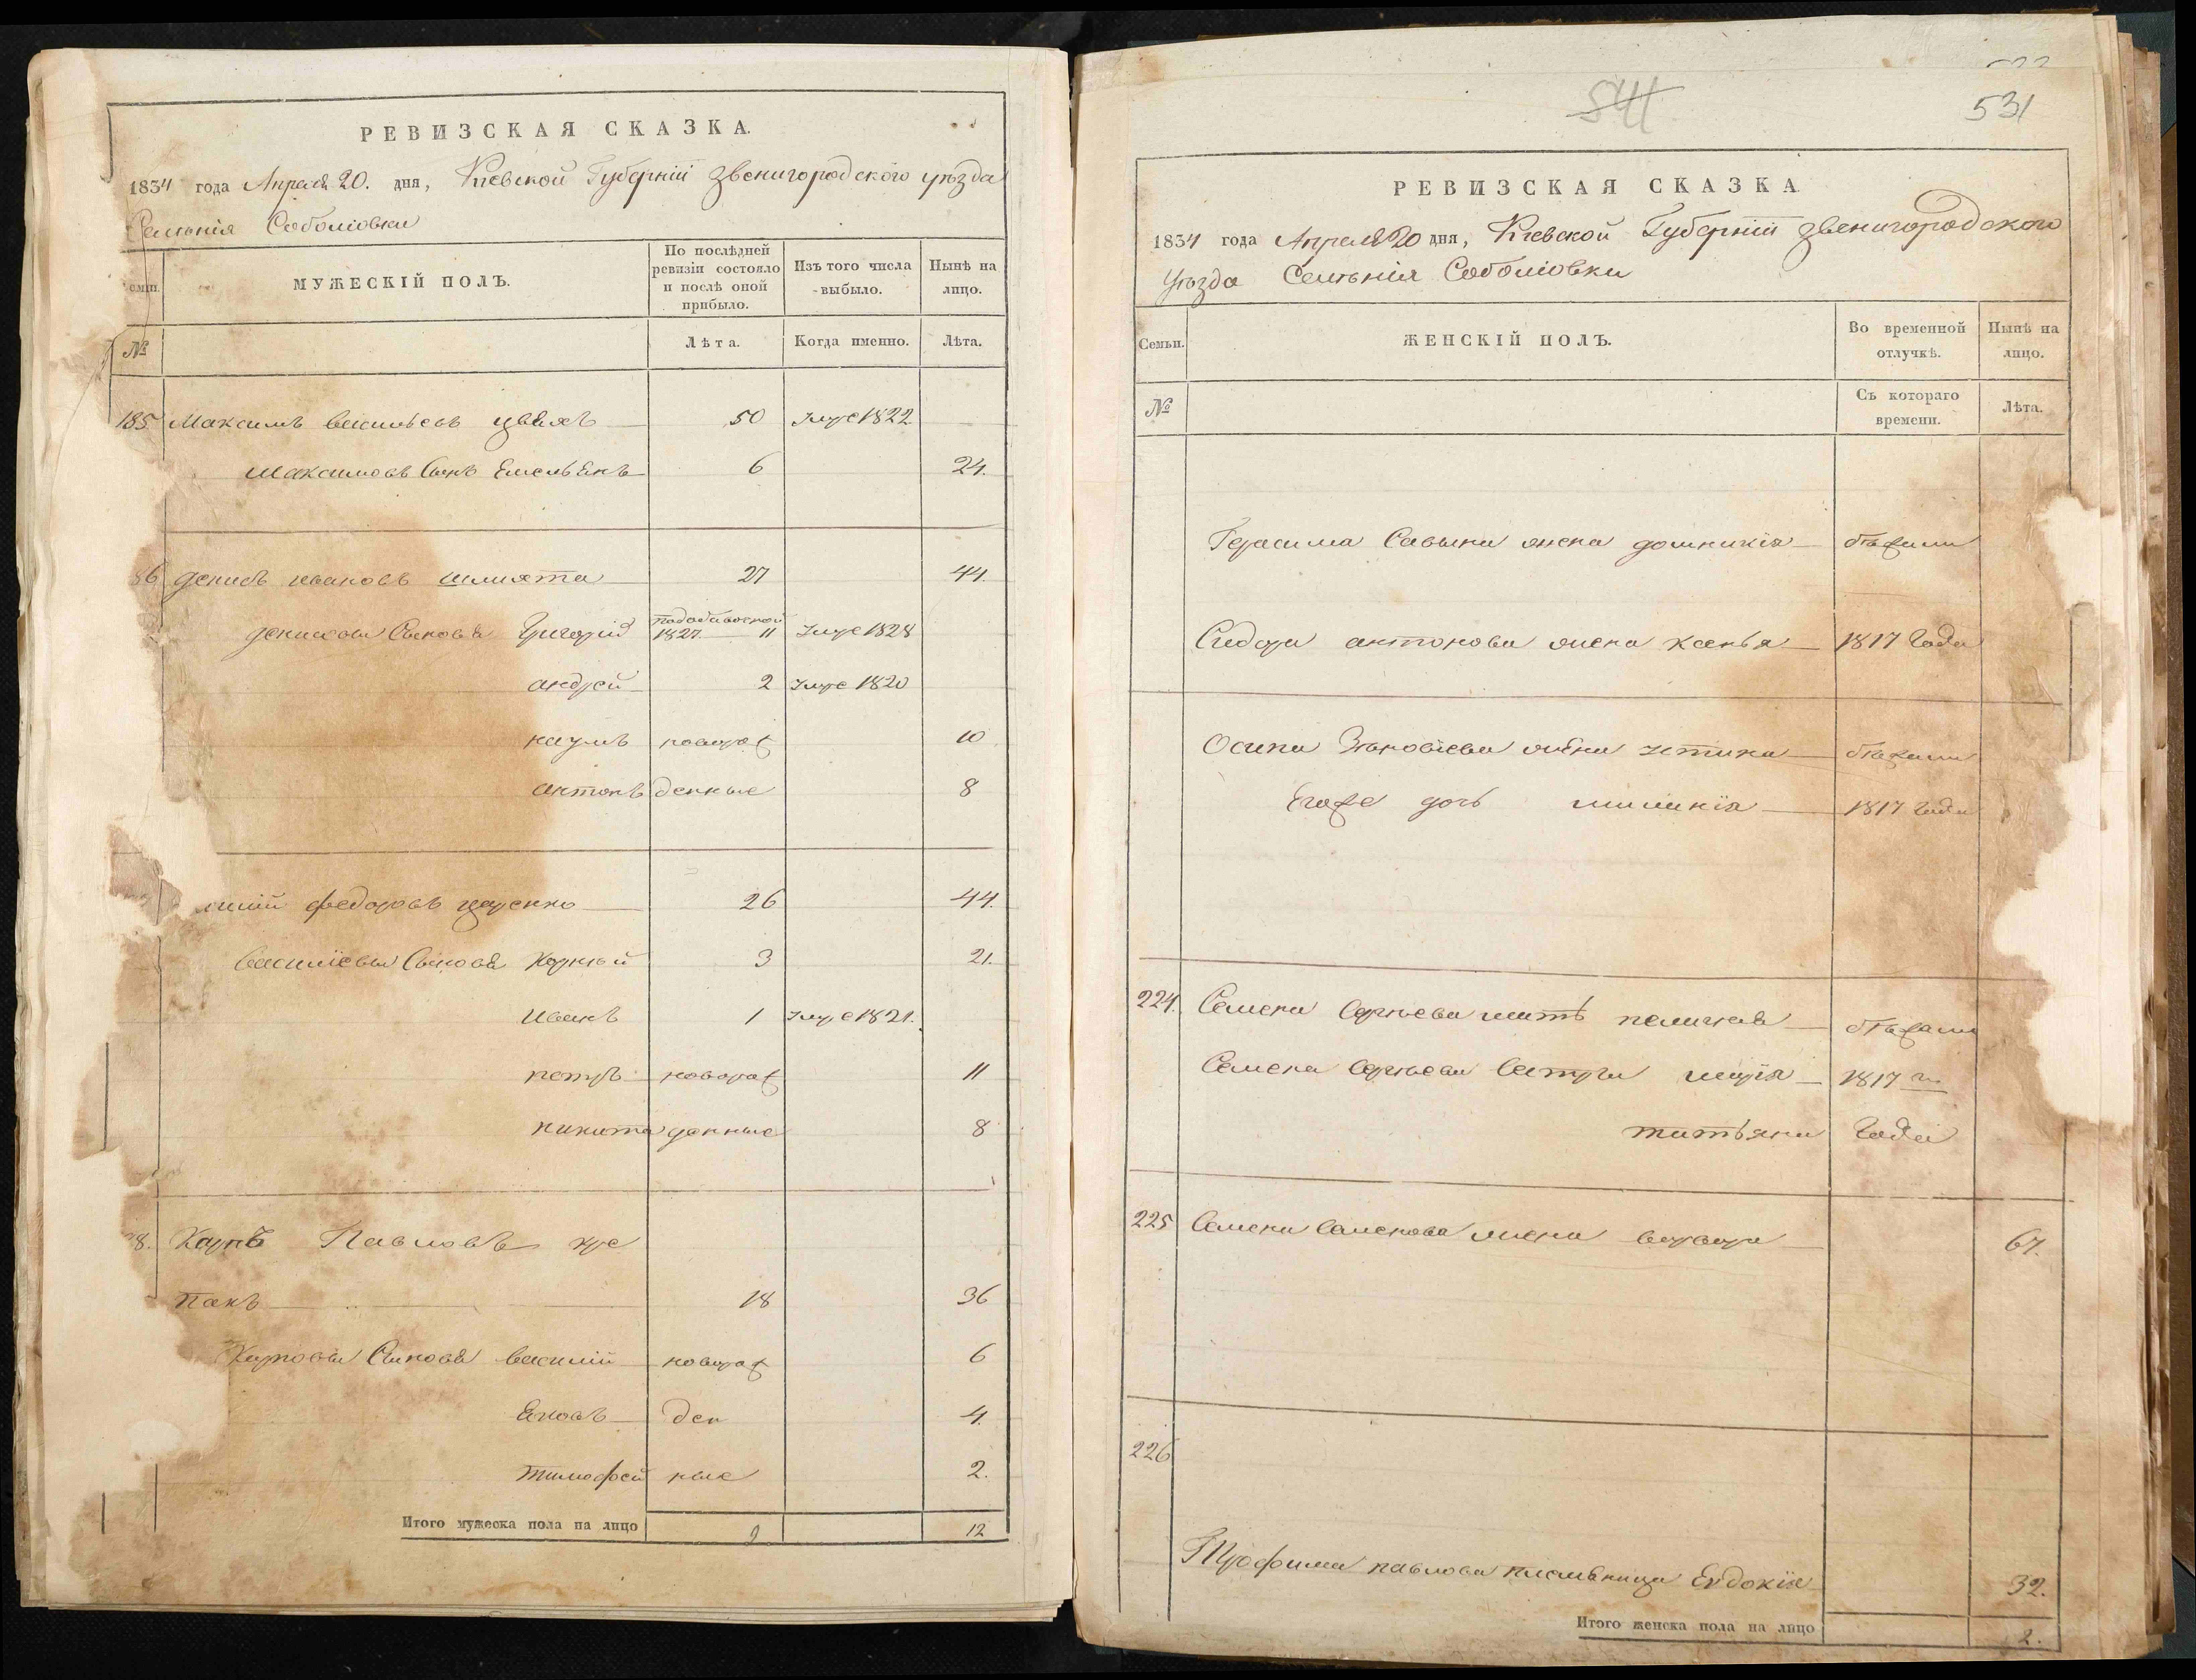 РЕВИЗСКАЯ СКАЗКА.
1834 года Апреля 20. дня, Кіевской Губерніи Звенигородского уѣзда
Селенія Соболіовки
семьи.
МУЖЕСКІЙ ПОЛЪ.
По послѣдней ревизіи состояло и послѣ оной прибыло.
Изъ того числа выбыло.
Нынѣ на лицо.
№
Лѣта.
Когда именно.
Лѣта.
185 Максимъ васильевъ 50 Умре 1822
Максимовъ Сынъ Емельянъ 6 24.
86 денисъ ивановъ шмиета 27 44.
денисовы Сыновя Григорій 1827 11 Умре 1828
андрей 2 Умре 1820
наумъ новорож 10
антонъ денные 8
федоровъ 26 44.
Василіевы Сыновя Корній 3 21.
Иванъ 1 Умре 1821.
петръ новорож 11
никита денные 8
8. Карпъ Павловъ кре
пакъ 18 36
Карповы Сыновя василій новорож 6
Яковъ ден 4
тимофей ные 2.
Итого мужеска пола на лицо 9 12
544
531
РЕВИЗСКАЯ СКАЗКА
1834 года Апреля 20 дня, Кіевской Губерніи Звенигородского
Уѣзда Селенія Соболіовки
Семьи.
ЖЕНСКІЙ ПОЛЪ.
Во временной отлучкѣ.
Нынѣ на лицо.
№
Съ котораго времени.
Лѣта.
Герасима Савына жена домникія бѣжали
Сидора антонова жена ксенья 1817 Года
Осипа Зѣновіева жена бѣжали
Егоже дочь 1817 Года
224. Семена Сергѣева мать пелагея бѣжали
Семена Сергѣева Сестры марія 1817 го
татьяна Года
225 Семена Семенова жена варвара 67.
226
Трофима павлова племѣница Евдокія 32.
Итого женска пола на лицо 2.